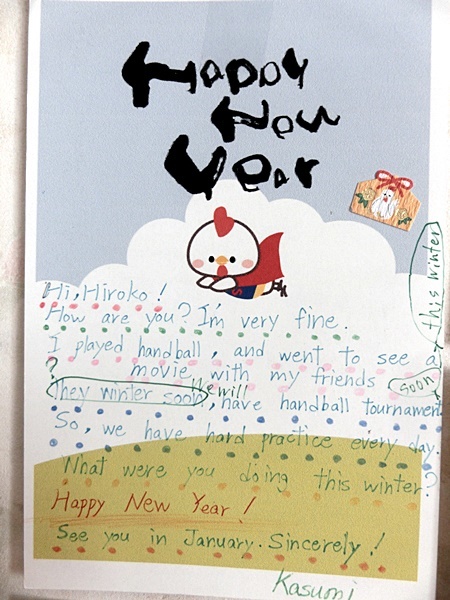 Happy
New
Year
Hi, Hiroko!
How are you? I'm very fine.
I played handball, and went to see a
movie with my friends this winter
soon
?
They winter soon, We will have handball tournament
So, we have hard practice every day.
What were you doing this winter?
Happy New Year!
See you in January. Sincerely!
Kasumi